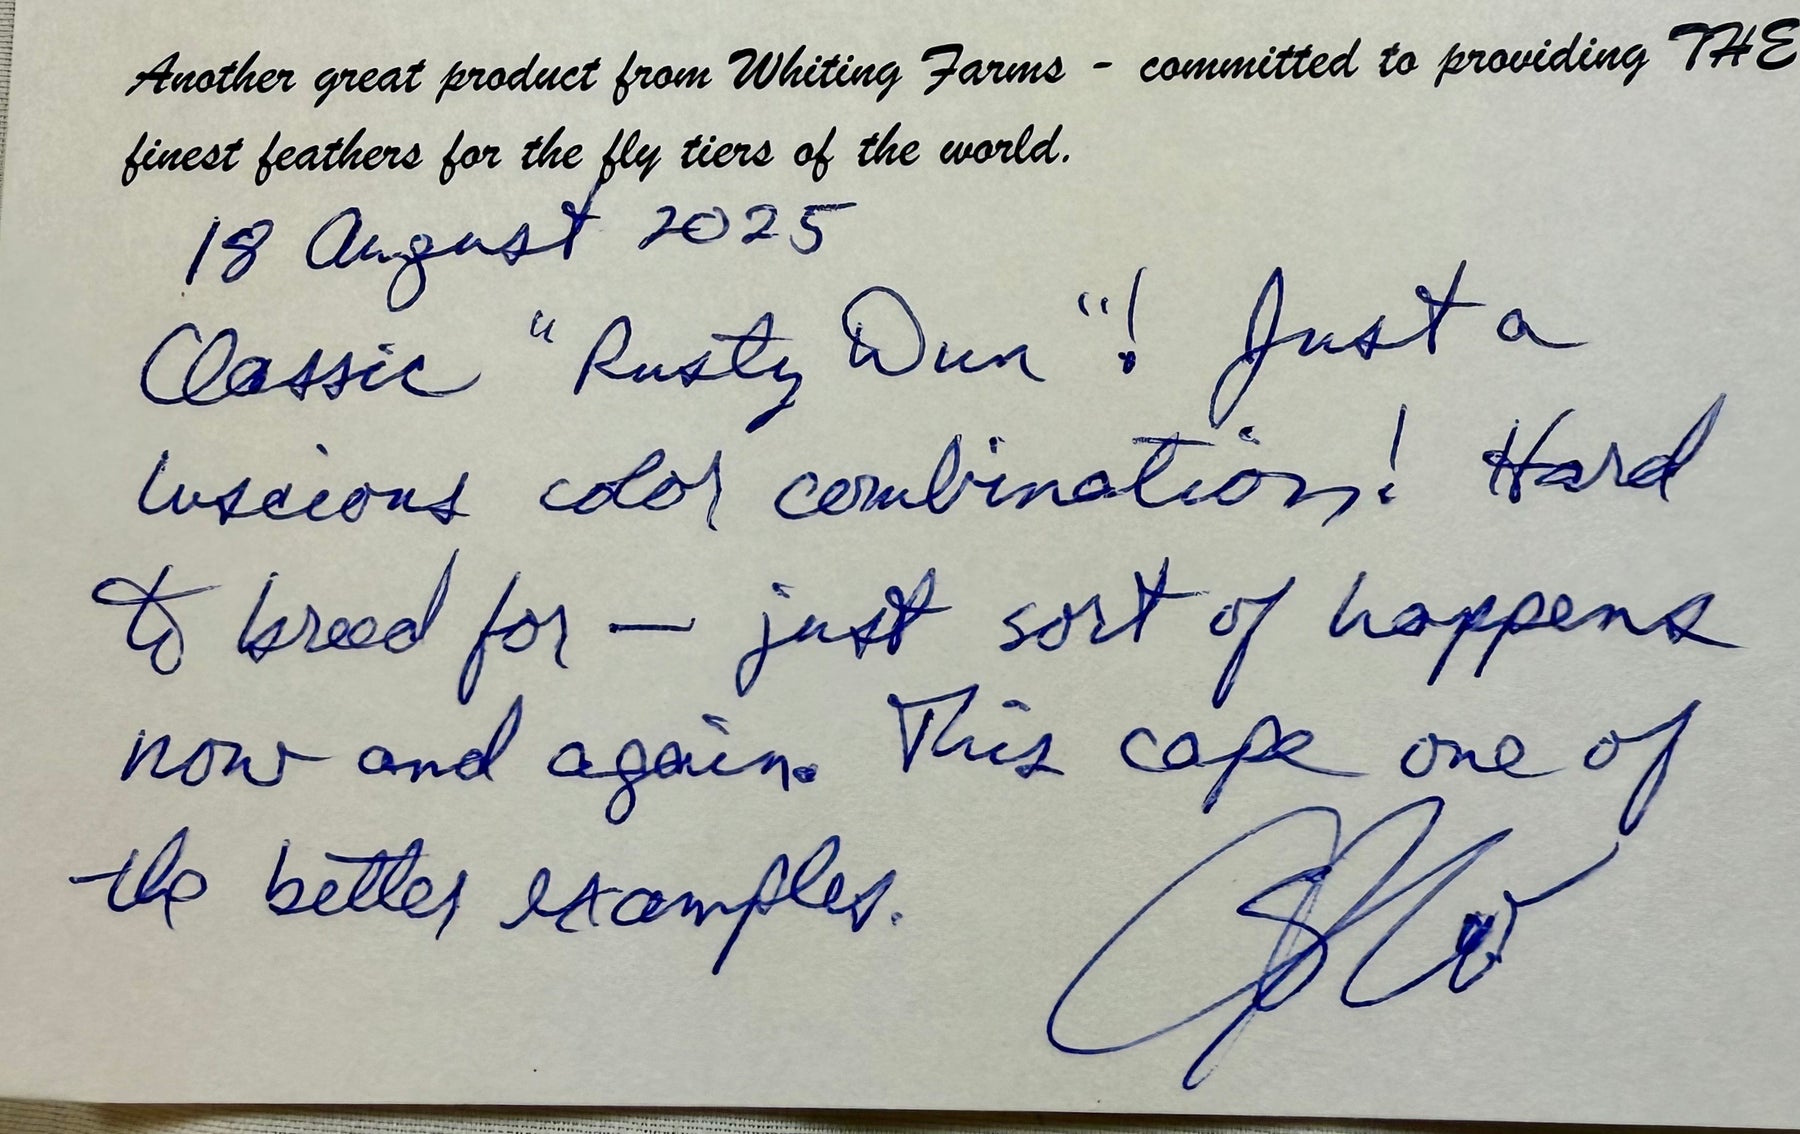 Another great product from Whiting Farms - committed to providing THE
finest feathers for the fly tiers of the world.
18 August 2025
Classic "Rusty Dun"! Just a
luscious color combination! Hard
to breed for — just sort of happens
now and again. This cape one of
the better examples.